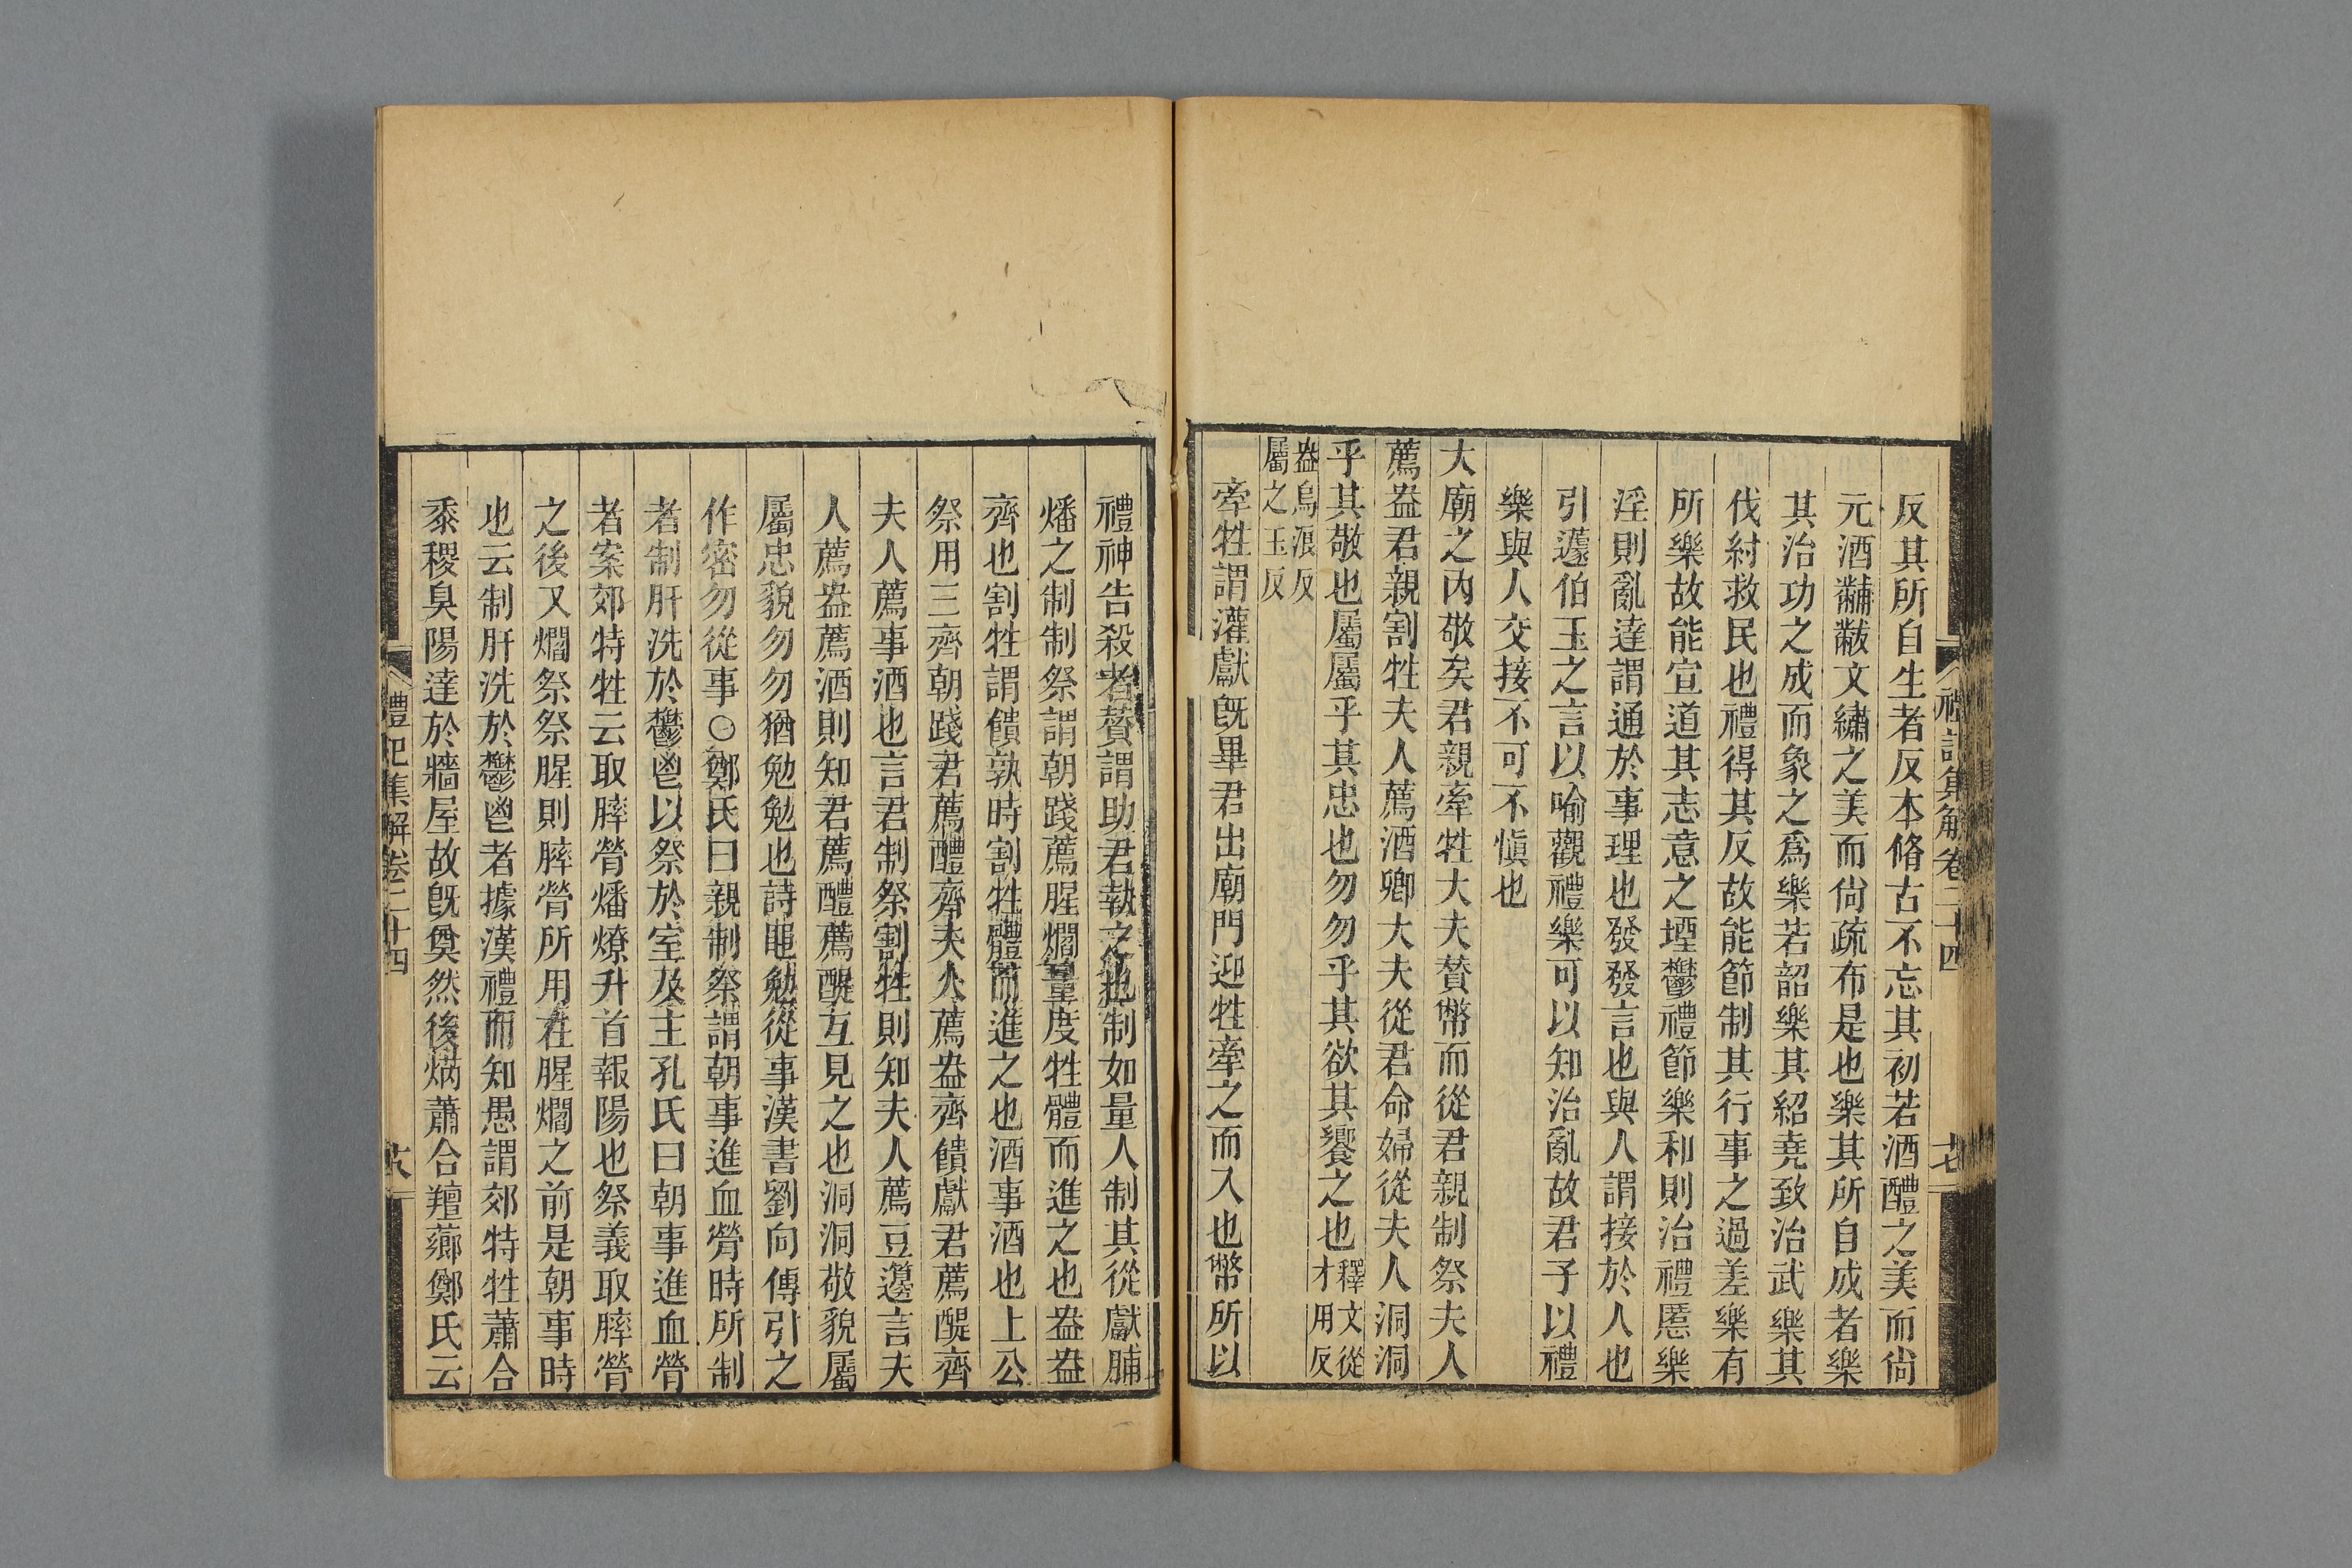 禮記集解卷二十四
十七
反其所自生者反本脩古不忘其初若酒醴之美而尙
元酒黼黻文繡之美而尙疏布是也樂其所自成者樂
其治功之成而象之爲樂若韶樂其紹堯致治武樂其
伐紂救民也禮得其反故能節制其行事之過差樂有
所樂故能宣道其志意之堙鬱禮節樂利則治禮慝樂
淫則亂達謂通於事理也發發言也與人謂接於人也
引蘧伯玉之言以喻觀禮樂可以知治亂故君子以禮
樂與人交接不可不愼也
大廟之內敬矣君親牽牲大夫贊幣而從君親制祭夫人
薦盎君親割牲夫人薦酒卿大夫從君命婦從夫人洞洞
乎其敬也屬屬乎其忠也勿勿乎其欲其饗之也釋文從才用反
盎烏浪反屬之玉反
牽牲謂灌獻旣畢君出廟門迎牲牽之而入也幣所以
禮神告殺者贊謂助君執之也制如量人制其從獻脯
燔之制制祭謂朝踐薦腥爓量度牲體而進之也盎盎
齊也割牲謂饋孰時割牲體而進之也酒事酒也上公
祭用三齊朝踐君薦醴齊夫人薦盎齊饋獻君薦醍齊
夫人薦事酒也言君制祭割牲則知夫人薦豆籩言夫
人薦盎薦酒則知君薦醴薦醍互見之也洞洞敬貌屬
屬忠貌勿勿猶勉勉也詩黽勉從事漢書劉向傳引之
作密勿從事○鄭氏曰親制祭謂朝事進血膋時所制
者制肝洗於鬱鬯以祭於室及主孔氏曰朝事進血膋
者案郊特牲云取膟膋燔燎升首報陽也祭義取膟膋
之後又爓祭祭腥則膟膋所用在腥爓之前是朝事時
也云制肝洗於鬱鬯者據漢禮而知愚謂郊特牲蕭合
黍稷臭陽達於牆屋故旣奠然後焫蕭合羶薌鄭氏云
禮記集解卷二十四
十八